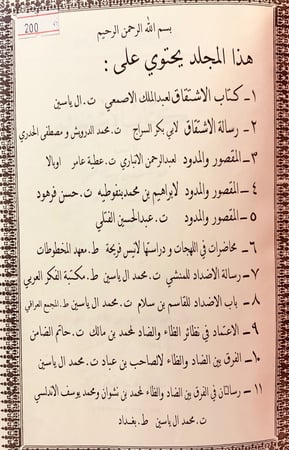 200
بسم الله الرحمن الرحيم
هذا المجلد يحتوي على :
١- كتاب الاشتقاق لعبدالملك الاصمعي ت. ال ياسين
٢- رسالة الاشتقاق لابي بكر السراج ت. محمد الدرويش و مصطفى الحدري
٣- المقصور والمدود لعبدالرحمن الانباري ت. عطية عامر اوبالا
٤- المقصور والمدود لابراهيم بن محمد بنفوطيه ت. حسن فرهود
٥- المقصور والمدود ت. عبدالحسين الفتلي
٦- محاضرات في اللهجات و دراستها لانيس فريحة ط. معهد المخطوطات
٧- رسالة الاضداد للمنشي ت. محمد ال ياسين ط. مكتبة الفكر العربي
٨- باب الاضداد للقاسم بن سلام ت. محمد ال ياسين ط. المجمع العراقي
٩- الاعتماد في نظائر الظاء والضاد لمحمد بن مالك ت. حاتم الضامن
١٠- الفرق بين الضاد والظاء لالصاحب بن عباد ت. محمد ال ياسين
١١- رسالتان في الفرق بين الضاد والظاء لمحمد بن نشوان ومحمد يوسف الاندلسي
ت. محمد ال ياسين ط. بغداد